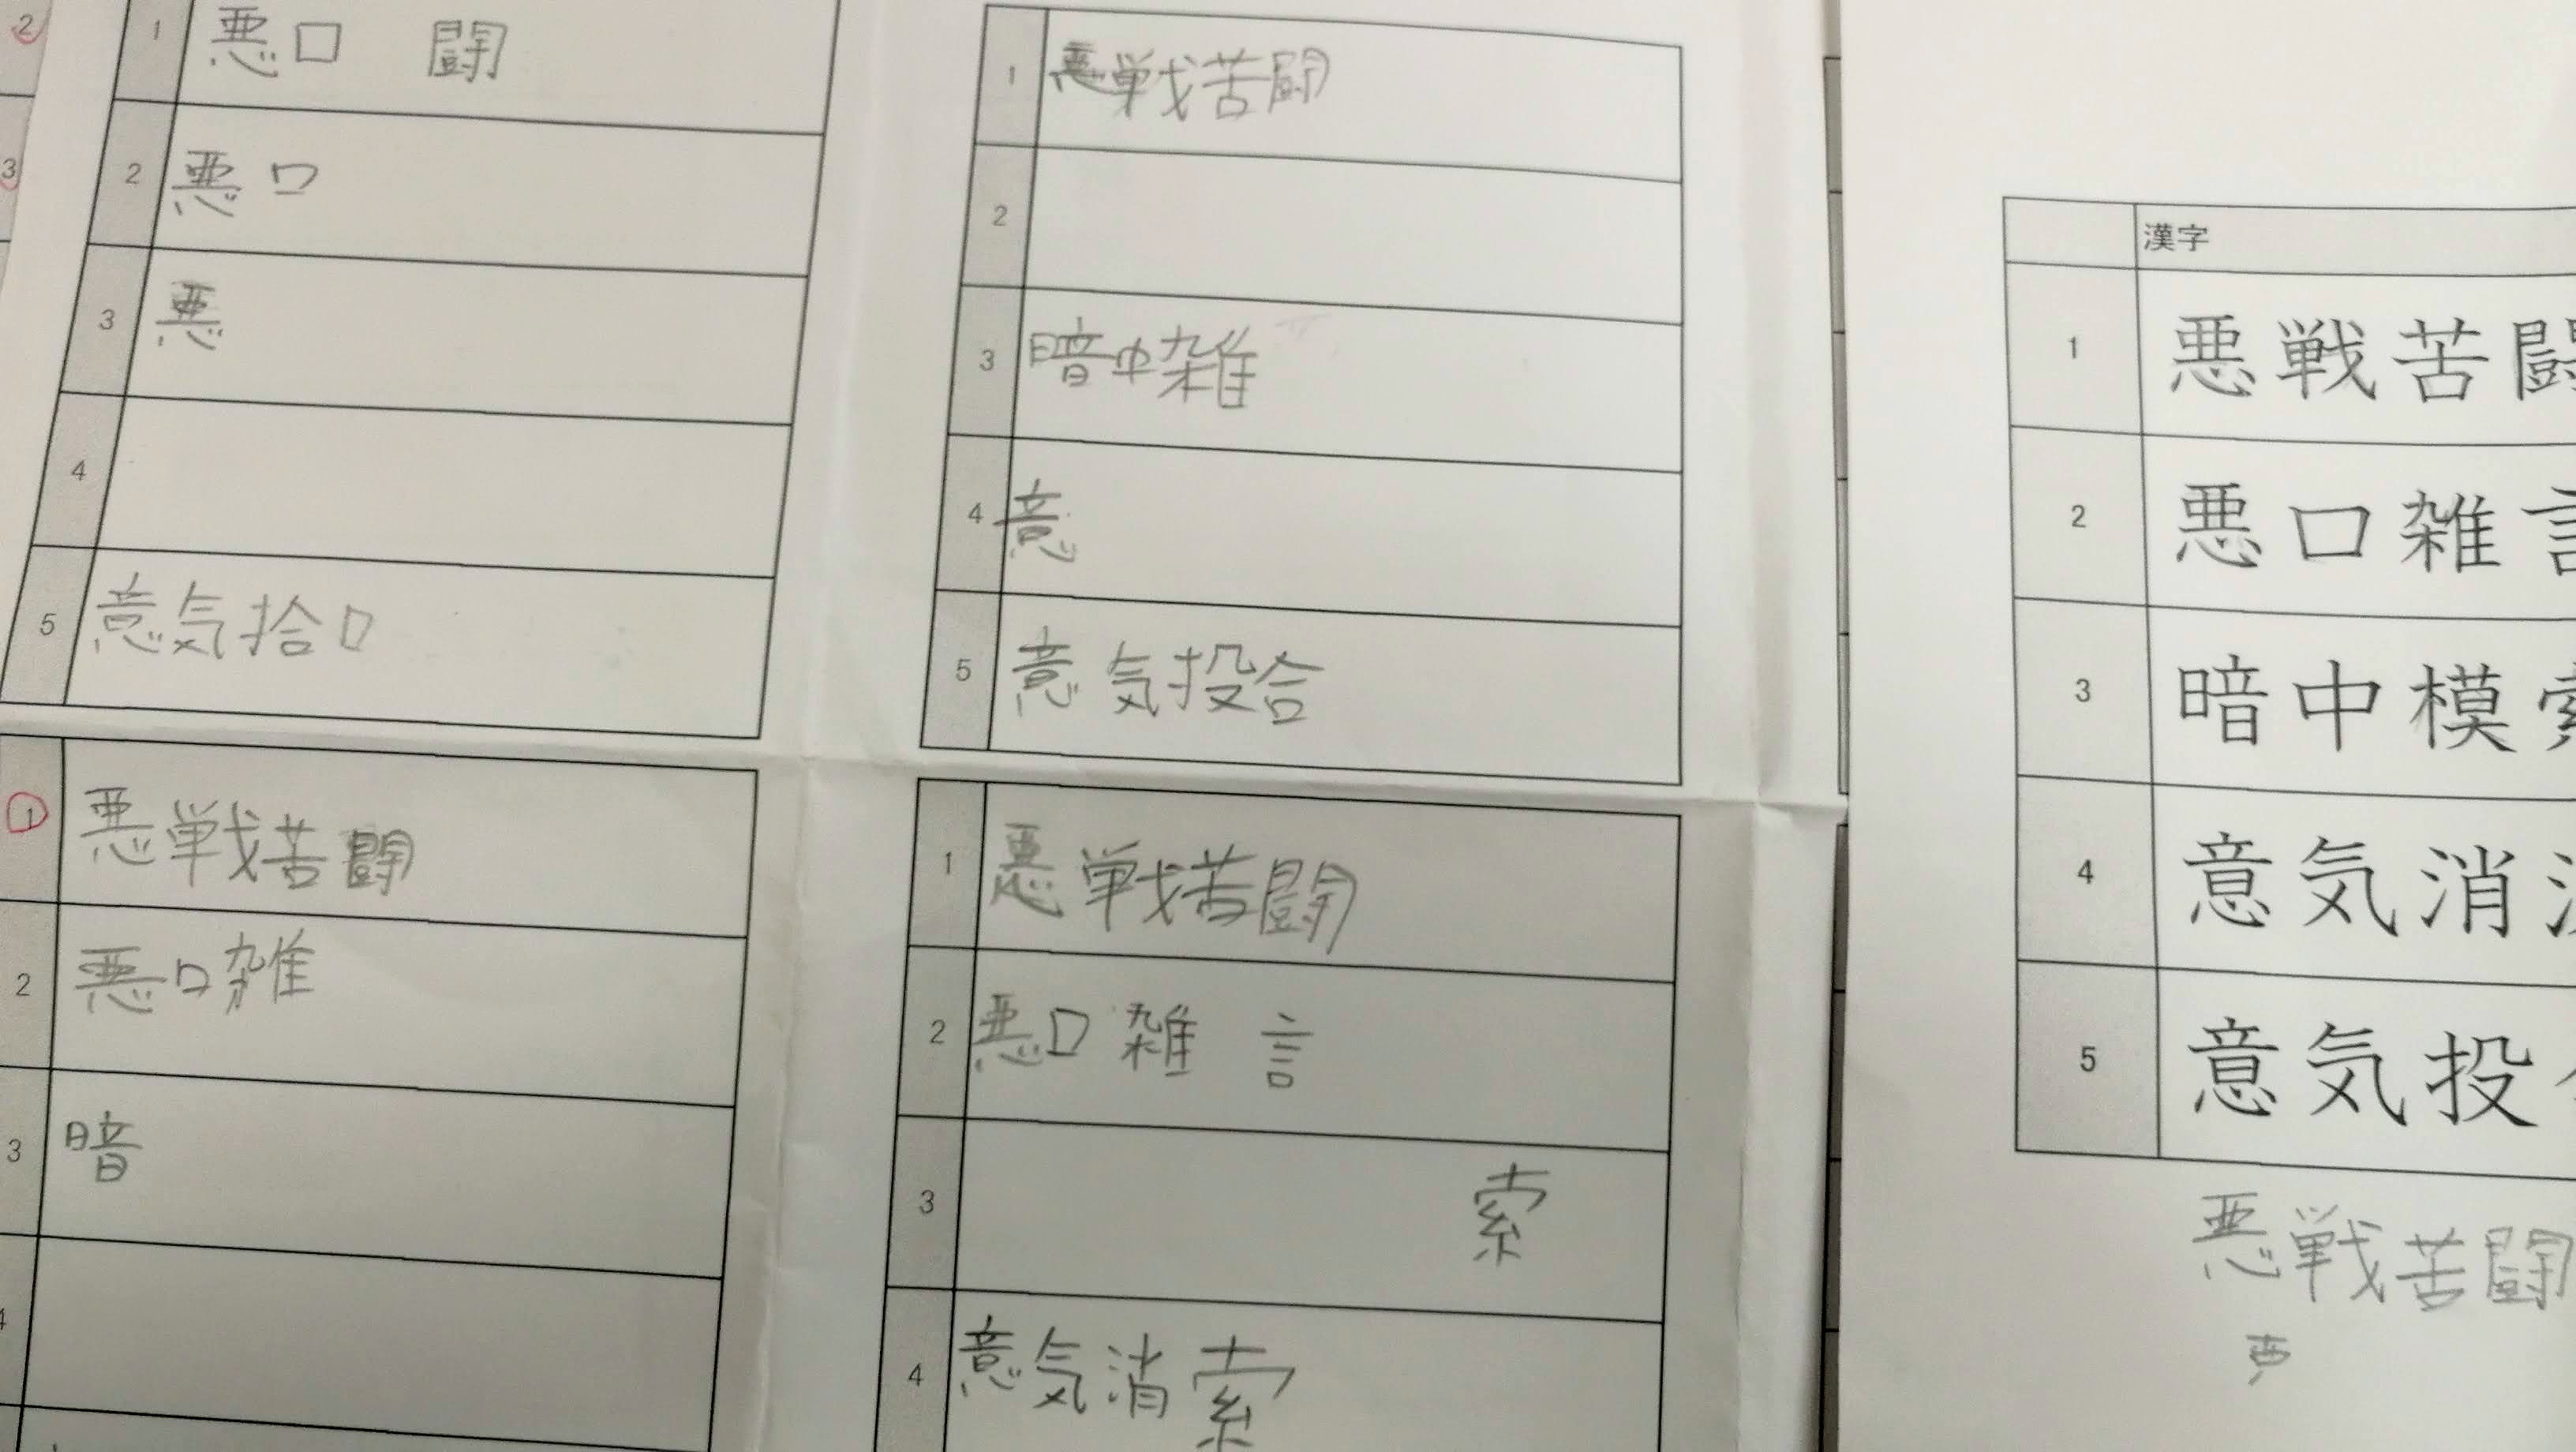 2
3
1 悪口 闘
2 悪口
3 悪
4
5 意気拾口
1 悪戦苦闘
2
3 暗中雑
4 意
5 意気投合
1 悪戦苦闘
2 悪口雑
3 暗
4
1 悪戦苦闘
2 悪口雑 言
3 索
4 意気消索
漢字
1 悪戦苦闘
2 悪口雑言
3 暗中模索
4 意気消
5 意気投
悪戦苦闘